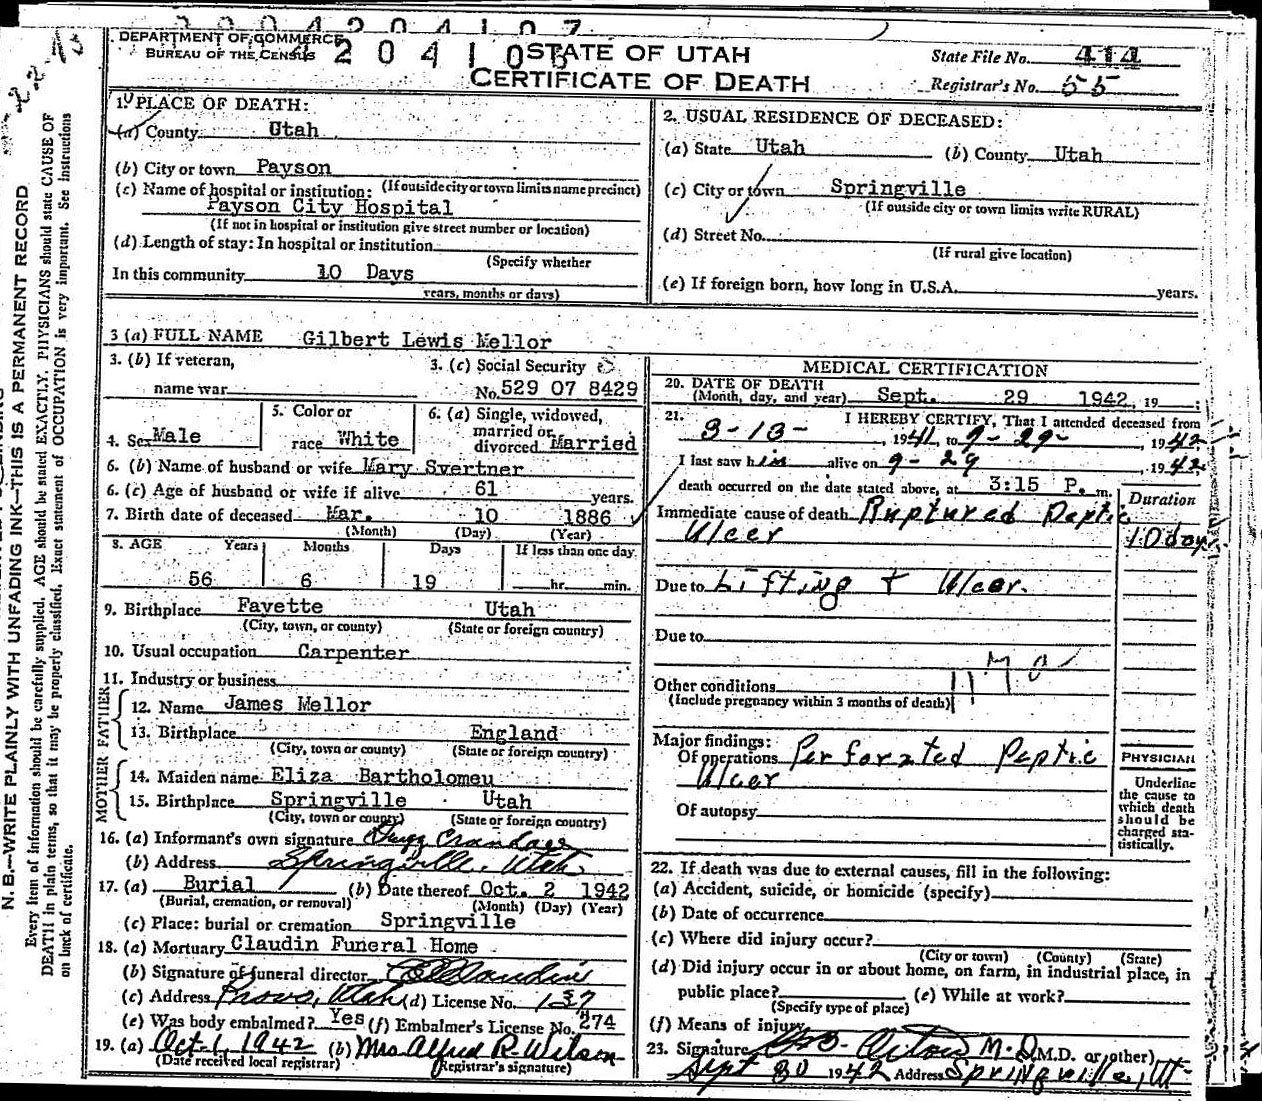 DEPARTMENT OF COMMERCE
BUREAU OF THE CENSUS
STATE OF UTAH
CERTIFICATE OF DEATH
State File No. 414
Registrar's No. 55
1. PLACE OF DEATH:
(a) County Utah
(b) City or town Payson
(c) Name of hospital or institution: (If outside city or town limits name precinct)
Payson City Hospital
(If not in hospital or institution give street number or location)
(d) Length of stay: In hospital or institution
(Specify whether
In this community 10 Days
years, months or days)
2. USUAL RESIDENCE OF DECEASED:
(a) State Utah (b) County Utah
(c) City or town Springville
(If outside city or town limits write RURAL)
(d) Street No.
(If rural give location)
(e) If foreign born, how long in U.S.A. years.
3 (a) FULL NAME Gilbert Lewis Mellor
3. (b) If veteran,
name war
3. (c) Social Security
No. 529 07 8429
4. Sex Male
5. Color or
race White
6. (a) Single, widowed,
married or
divorced Married
6. (b) Name of husband or wife Mary Svertner
6. (c) Age of husband or wife if alive 61 years.
7. Birth date of deceased Mar. 10 1886
(Month) (Day) (Year)
8. AGE Years Months Days If less than one day
56 6 19 hr. min.
9. Birthplace Fayette Utah
(City, town, or county) (State or foreign country)
10. Usual occupation Carpenter
11. Industry or business
FATHER
12. Name James Mellor
13. Birthplace England
(City, town or county) (State or foreign country)
MOTHER
14. Maiden name Eliza Bartholomeu
15. Birthplace Springville Utah
(City, town or county) (State or foreign country)
16. (a) Informant's own signature
(b) Address Springville, Utah
17. (a) Burial (b) Date thereof Oct. 2 1942
(Burial, cremation, or removal) (Month) (Day) (Year)
(c) Place: burial or cremation Springville
18. (a) Mortuary Claudin Funeral Home
(b) Signature of funeral director
(c) Address Provo, Utah (d) License No. 137
(e) Was body embalmed? Yes (f) Embalmer's License No. 274
19. (a) Oct-1, 1942 (b) Mrs Alfred R. Wilson
(Date received local registrar) (Registrar's signature)
MEDICAL CERTIFICATION
20. DATE OF DEATH
(Month, day, and year) Sept. 29 1942, 19
21. I HEREBY CERTIFY, That I attended deceased from
3-13-, 1941, to 9-29-, 1942
I last saw him alive on 9-29, 1942
death occurred on the date stated above, at 3:15 P. m.
Duration
Immediate cause of death Ruptured Peptic
Ulcer 10 day
Due to Lifting + Ulcer.
Due to
Other conditions
(Include pregnancy within 3 months of death)
Major findings:
Of operations Perforated Peptic
Ulcer
Of autopsy
PHYSICIAN
Underline
the cause to
which death
should be
charged sta-
tistically.
22. If death was due to external causes, fill in the following:
(a) Accident, suicide, or homicide (specify)
(b) Date of occurrence
(c) Where did injury occur?
(City or town) (County) (State)
(d) Did injury occur in or about home, on farm, in industrial place, in
public place? (e) While at work?
(Specify type of place)
(f) Means of injury
23. Signature M.D. (M.D. or other)
Sept 30 1942 Address Springville, Ut
N. B.—WRITE PLAINLY WITH UNFADING INK—THIS IS A PERMANENT RECORD
Every item of information should be carefully supplied. AGE should be stated EXACTLY. PHYSICIANS should state CAUSE OF
DEATH in plain terms, so that it may be properly classified. Exact statement of OCCUPATION is very important. See instructions
on back of certificate.